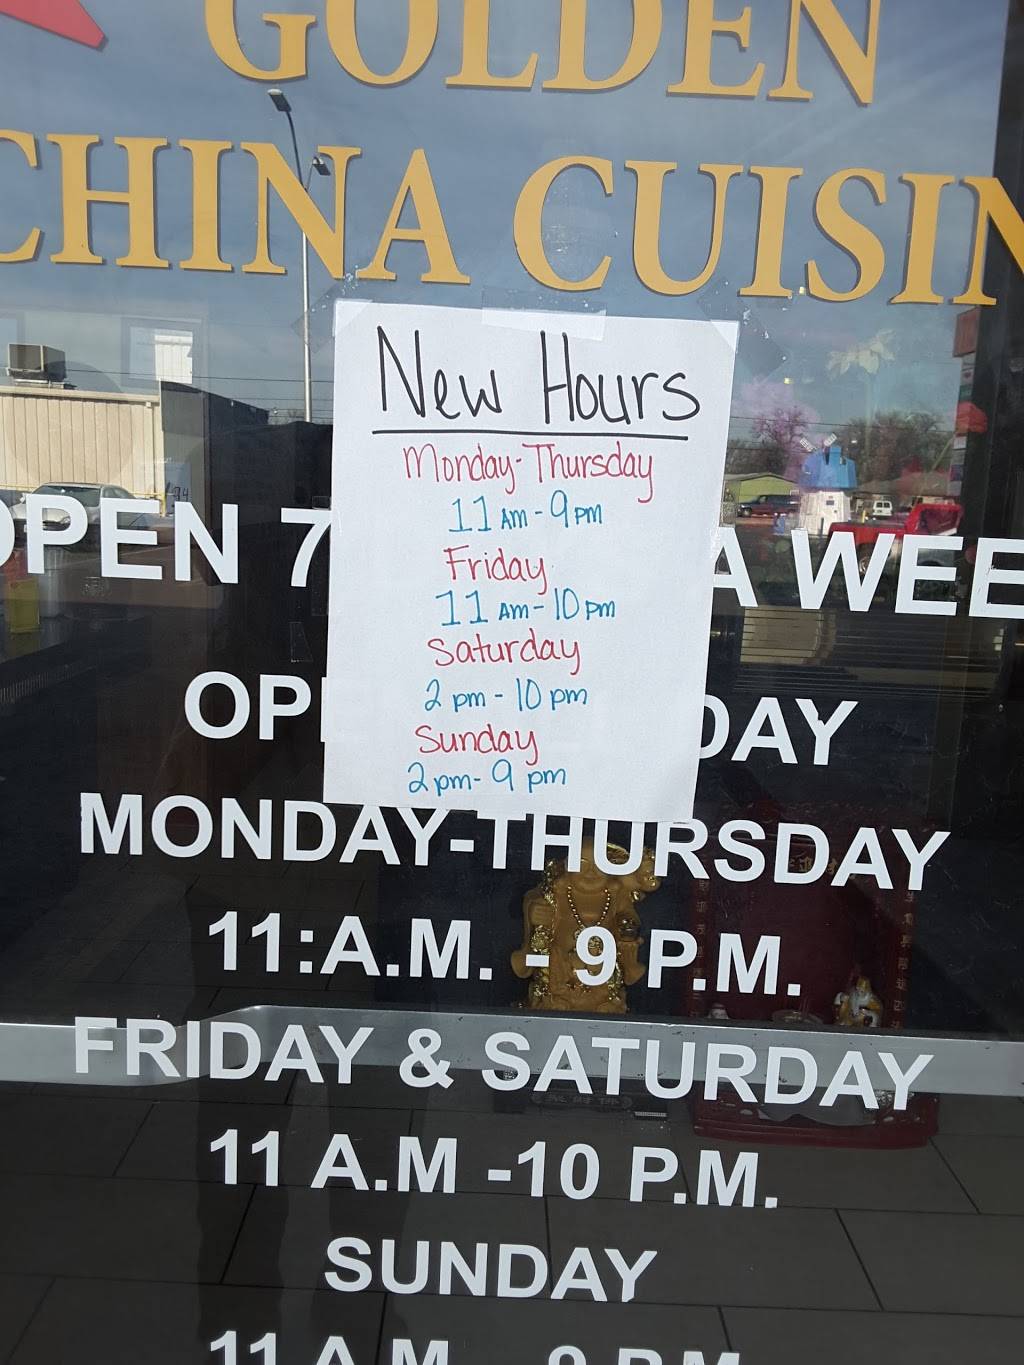 GOLDEN
CHINA CUISIN
New Hours
Monday-Thursday
11 AM - 9 PM
Friday
11 AM - 10 pm
Saturday
2 pm - 10 pm
Sunday
2 pm - 9 pm
OPEN 7 A WEE
OP DAY
MONDAY-THURSDAY
11:A.M. - 9 P.M.
FRIDAY & SATURDAY
11 A.M -10 P.M.
SUNDAY
11 A.M. - 9 P.M.